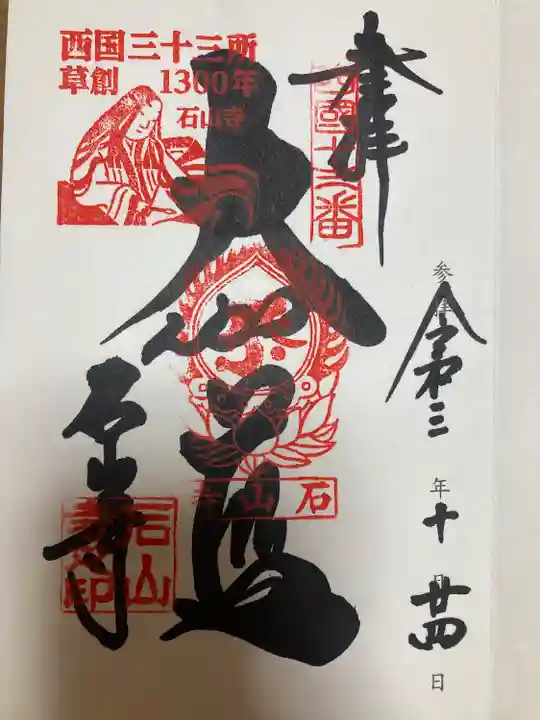 奉拝
西国十三番
西国三十三所
草創 1300年
石山寺
大悲殿
石山寺
石山寺
参拝
令和三年十月廿四日